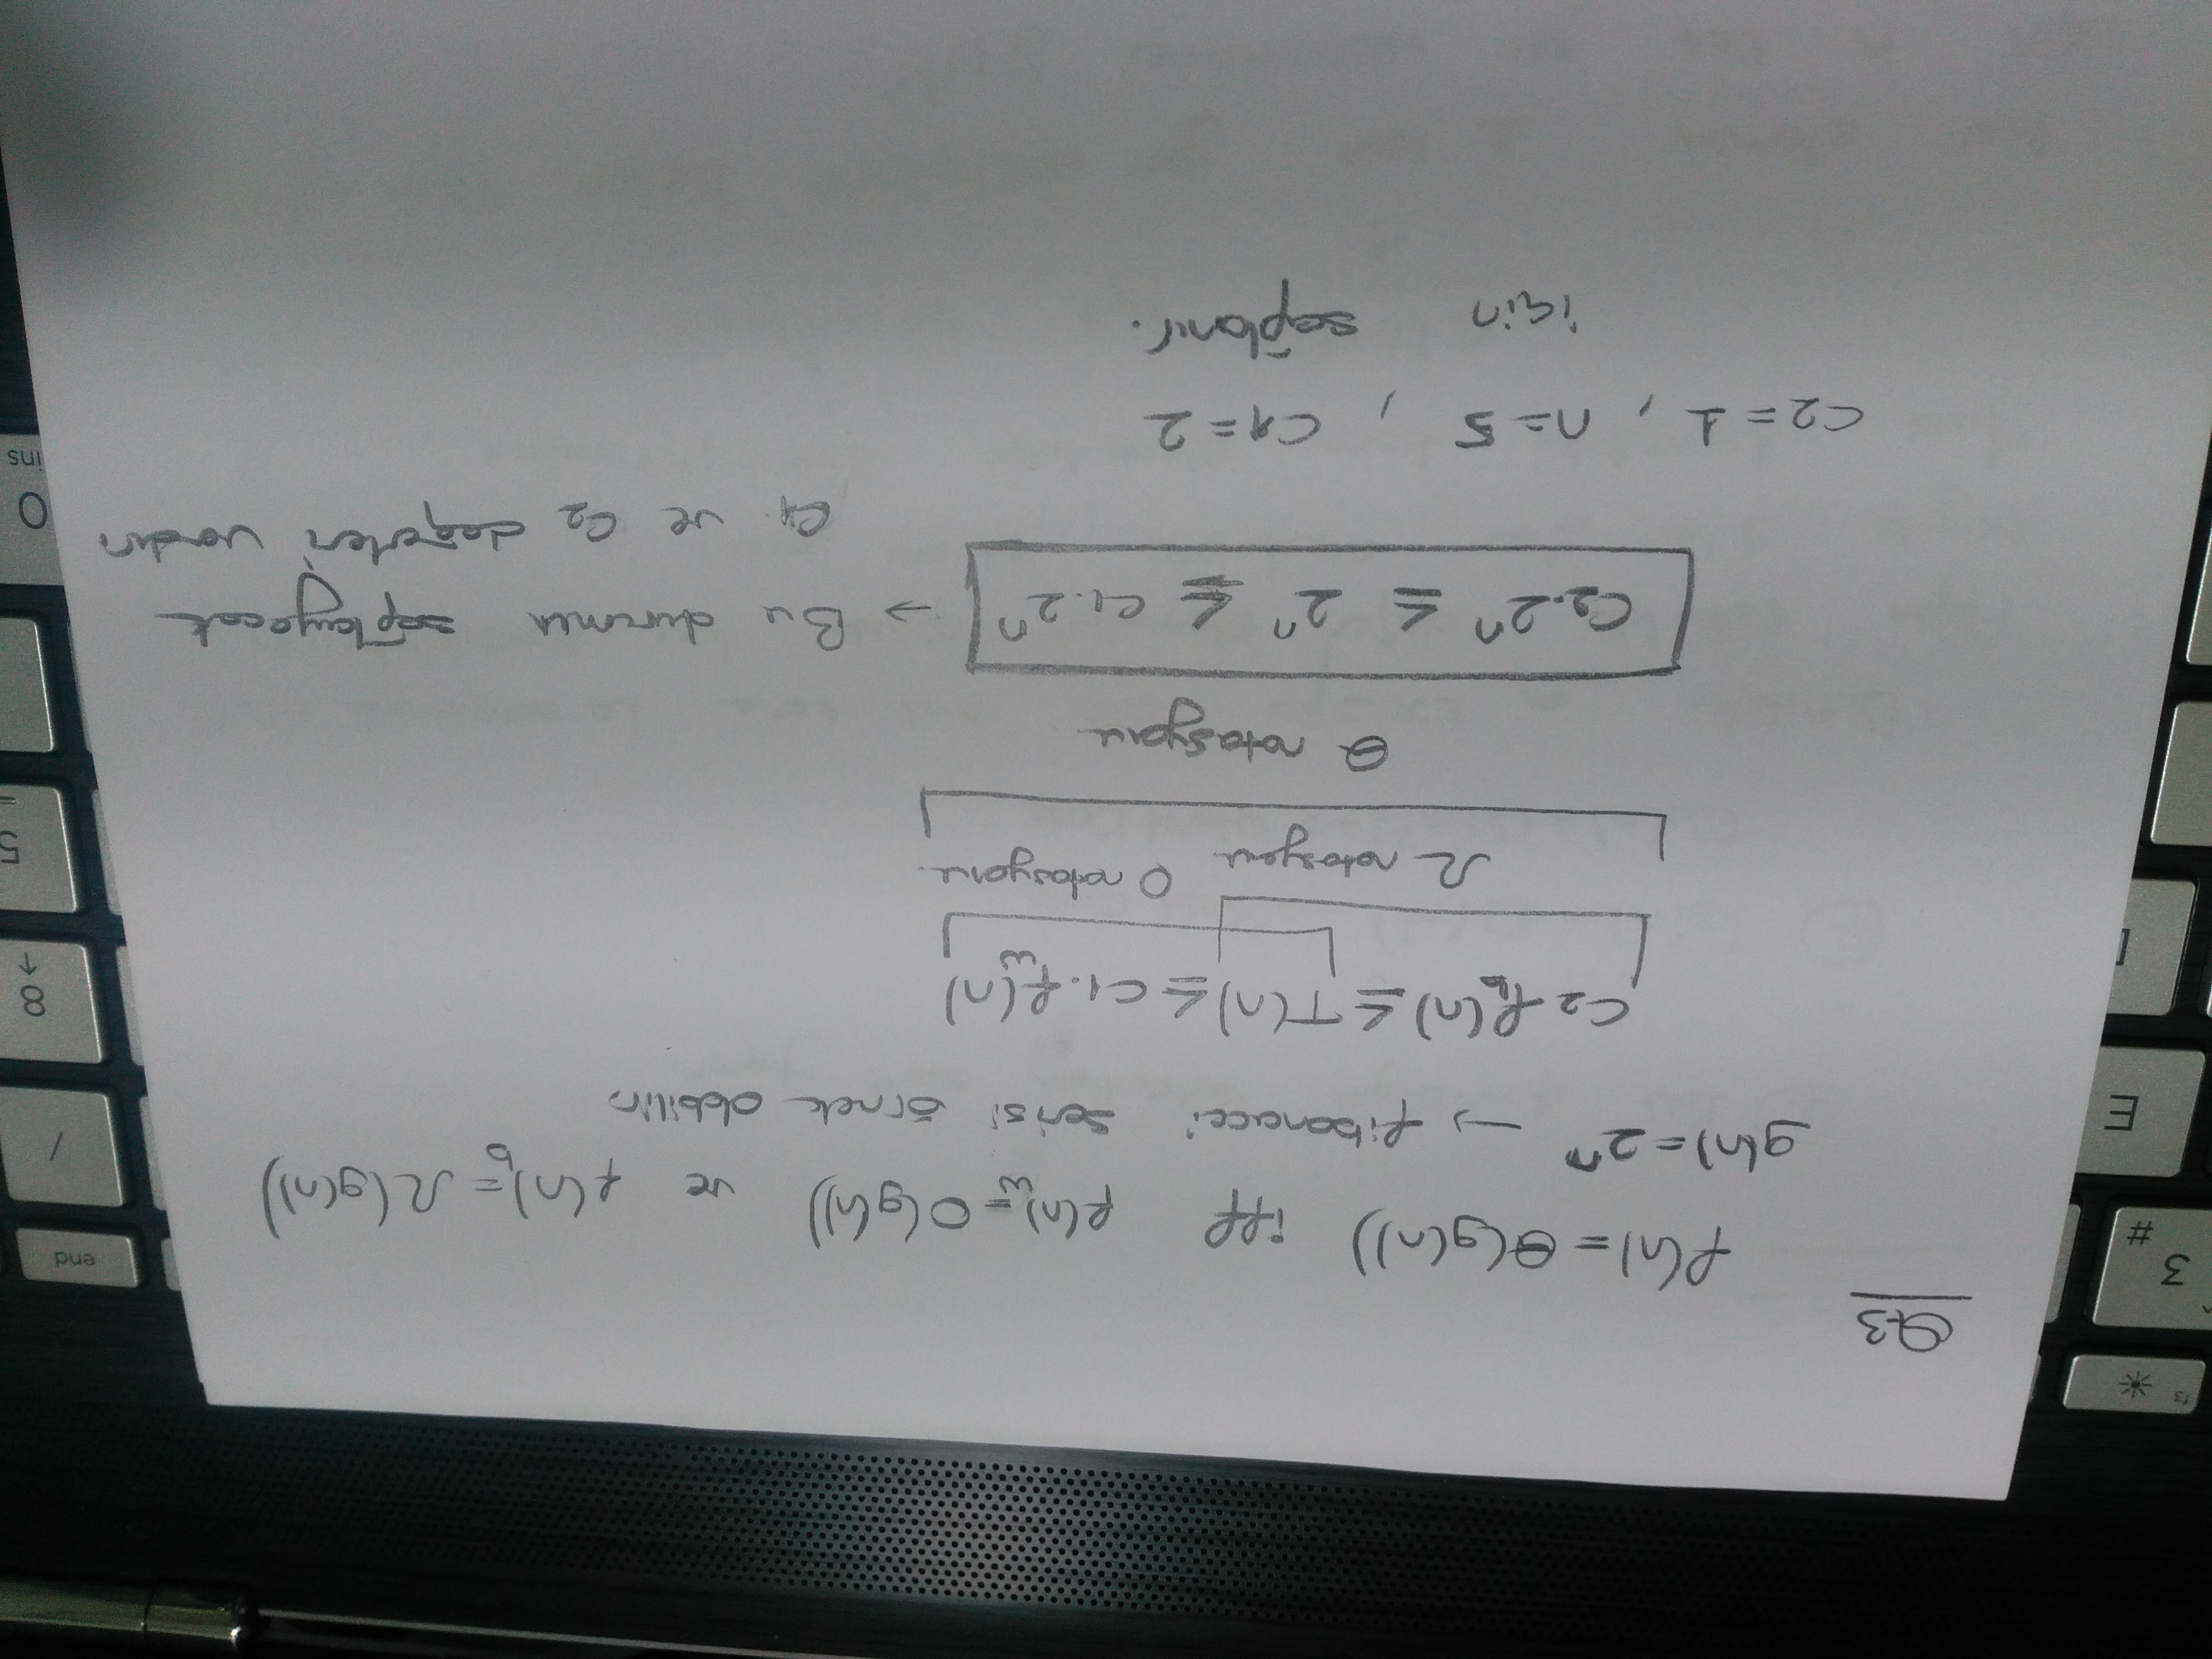 Q3
f(n) = Θ(g(n)) iff f(n)w = O(g(n)) ve f(n)b = Ω(g(n))
g(n) = 2ⁿ → fibonacci serisi örnek olabilir.
c2 fb(n) ≤ T(n) ≤ c1. fw(n)
Ω notasyonu O notasyonu.
Θ notasyonu
C2.2ⁿ ≤ 2ⁿ ≤ c1.2ⁿ → Bu durumu sağlayacak
c1 ve c2 değerleri vardır.
c2 = 1, n = 5, c1 = 2
için sağlanır.
3
#
E
end
/
8
↑
5
=
0
ins